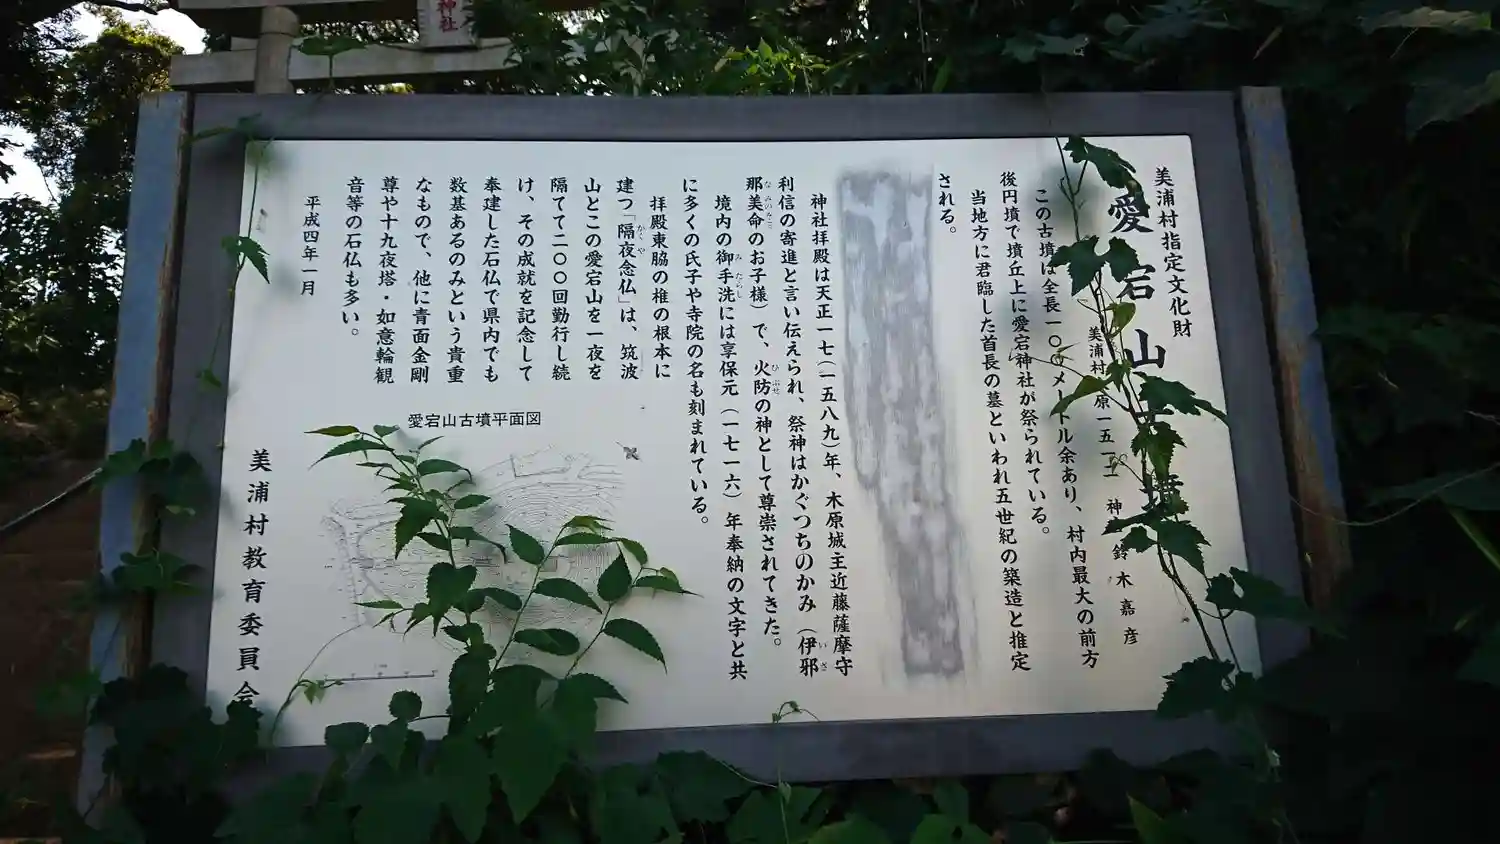 神社
美浦村指定文化財
愛宕山古墳
美浦村 原一五一一 神 鈴木嘉彦
この古墳は全長一〇〇メートル余あり、村内最大の前方
後円墳で墳丘上に愛宕神社が祭られている。
当地方に君臨した首長の墓といわれ五世紀の築造と推定
される。
神社拝殿は天正一七(一五八九)年、木原城主近藤薩摩守
利信の寄進と言い伝えられ、祭神はかぐつちのかみ(伊邪
那美命のお子様)で、火防の神として尊崇されてきた。
境内の御手洗には享保元(一七一六)年奉納の文字と共
に多くの氏子や寺院の名も刻まれている。
拝殿東脇の椎の根本に
建つ「隔夜念仏」は、筑波
山とこの愛宕山を一夜を
隔てて二〇〇回勤行し続
け、その成就を記念して
奉建した石仏で県内でも
数基あるのみという貴重
なもので、他に青面金剛
尊や十九夜塔・如意輪観
音等の石仏も多い。
平成四年一月
愛宕山古墳平面図
美浦村教育委員会